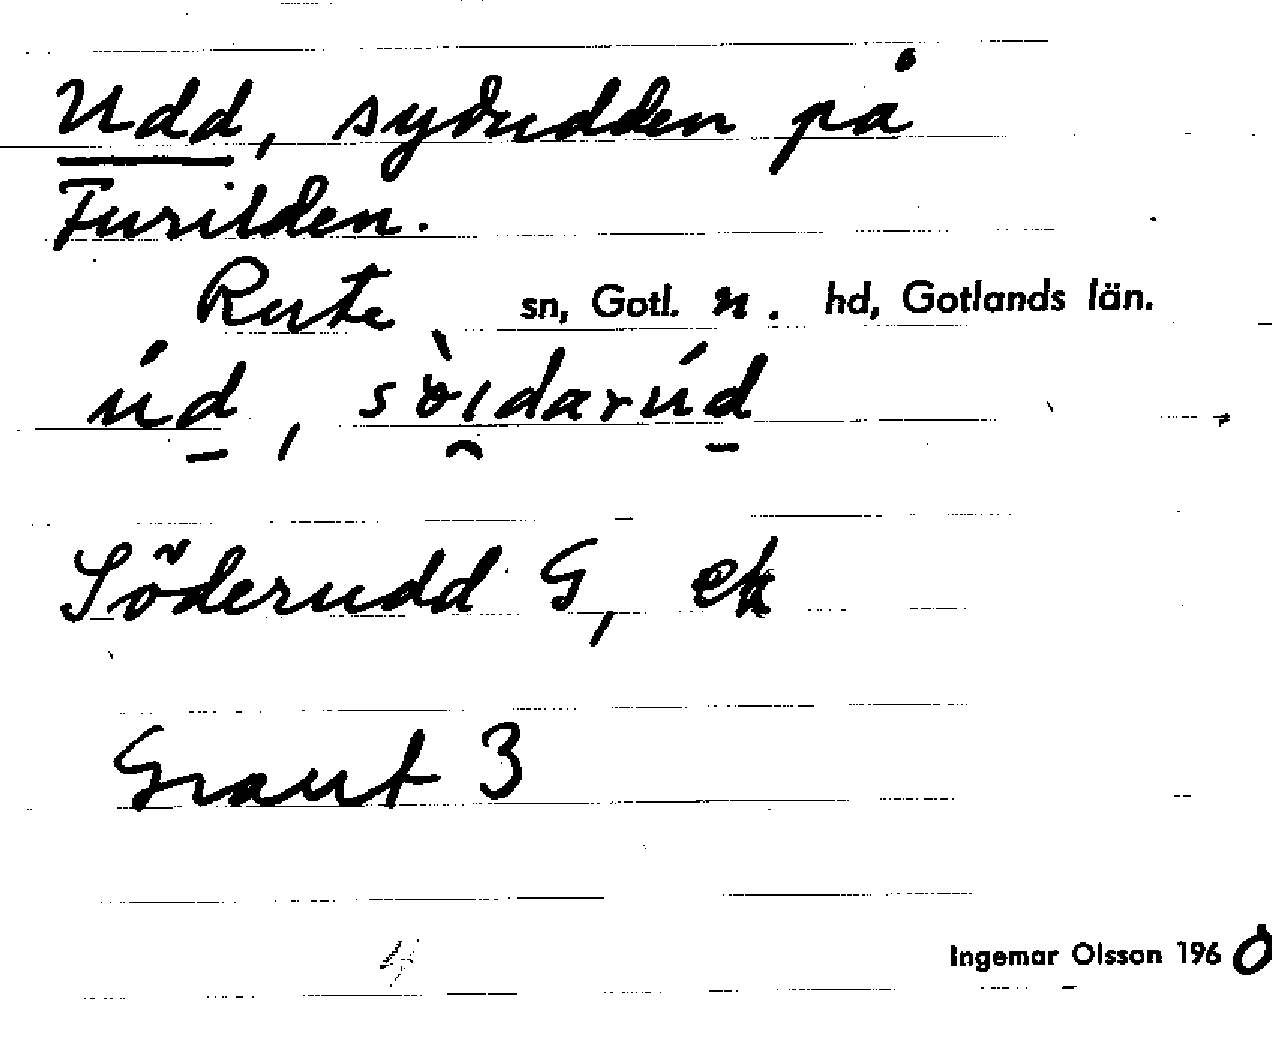 Udd, sydudden på
Furilden.
Rute sn, Gotl. n. hd, Gotlands län.
úd, sòıdarúd
Söderudd G, ek
Graut 3
Ingemar Olsson 1960